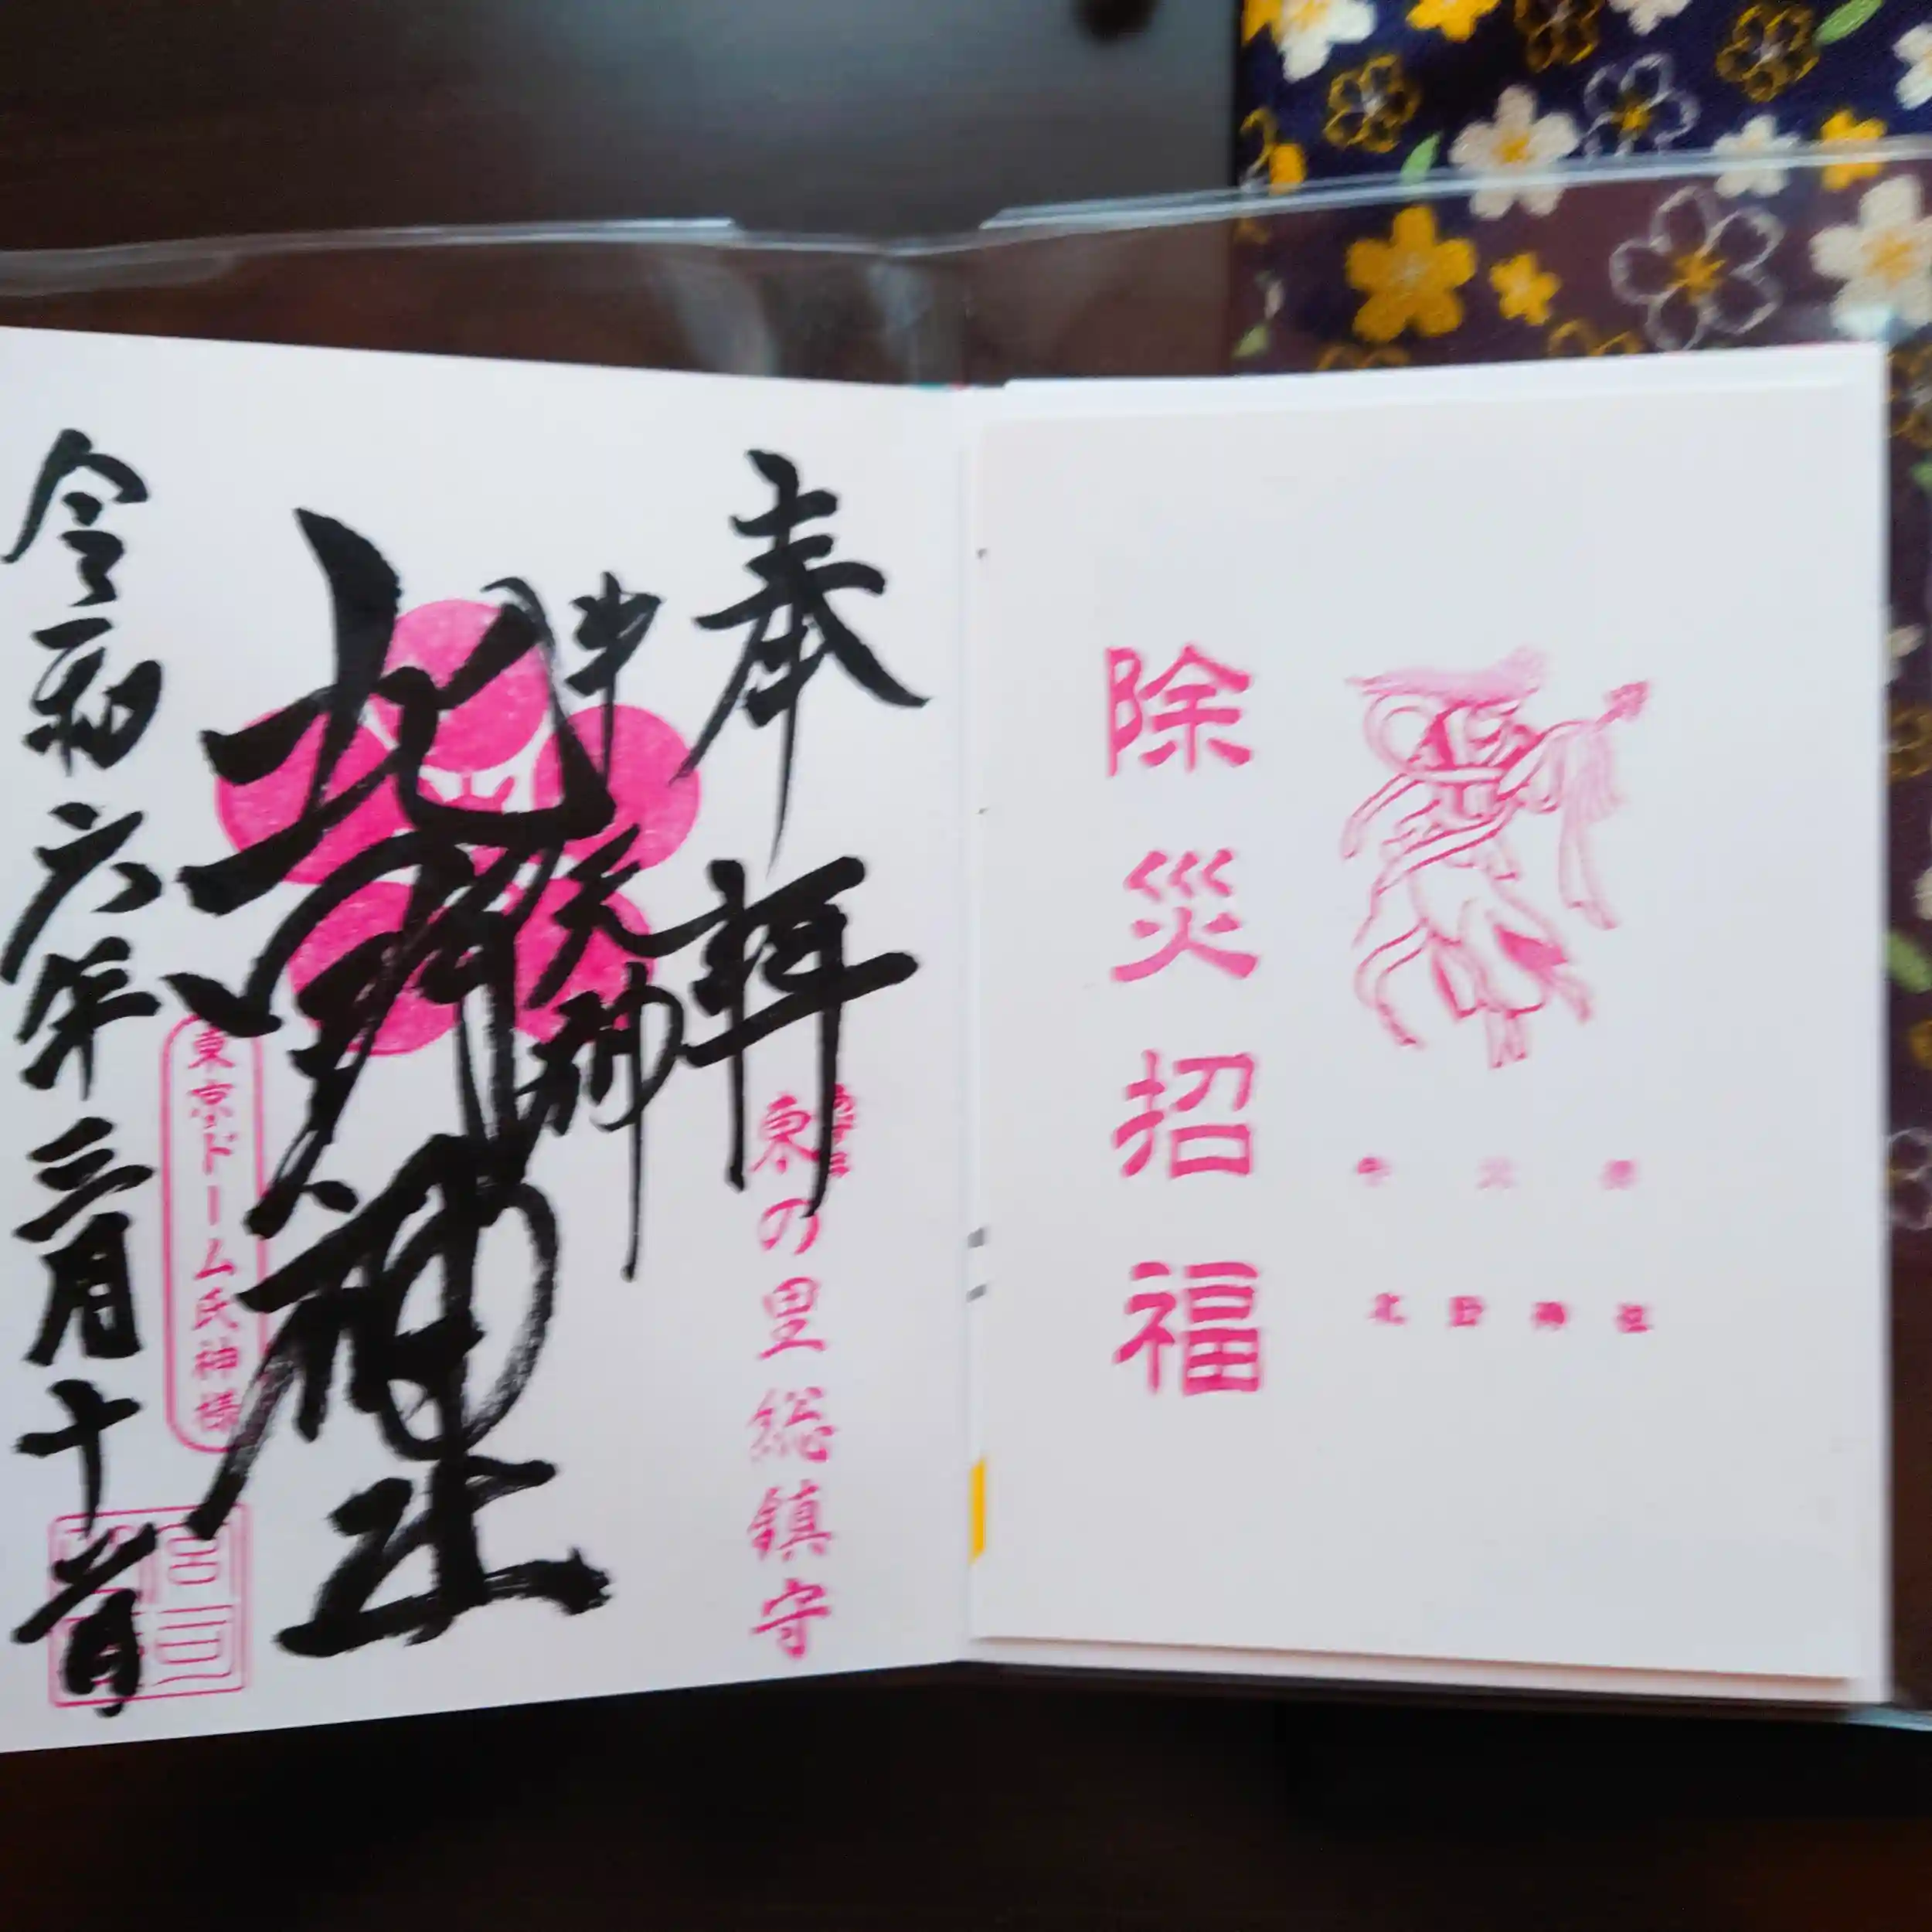 除災招福
北野神社
奉拝
東の里総鎮守
牛天神
北野神社
東京ドーム氏神様
令和六年三月十一日